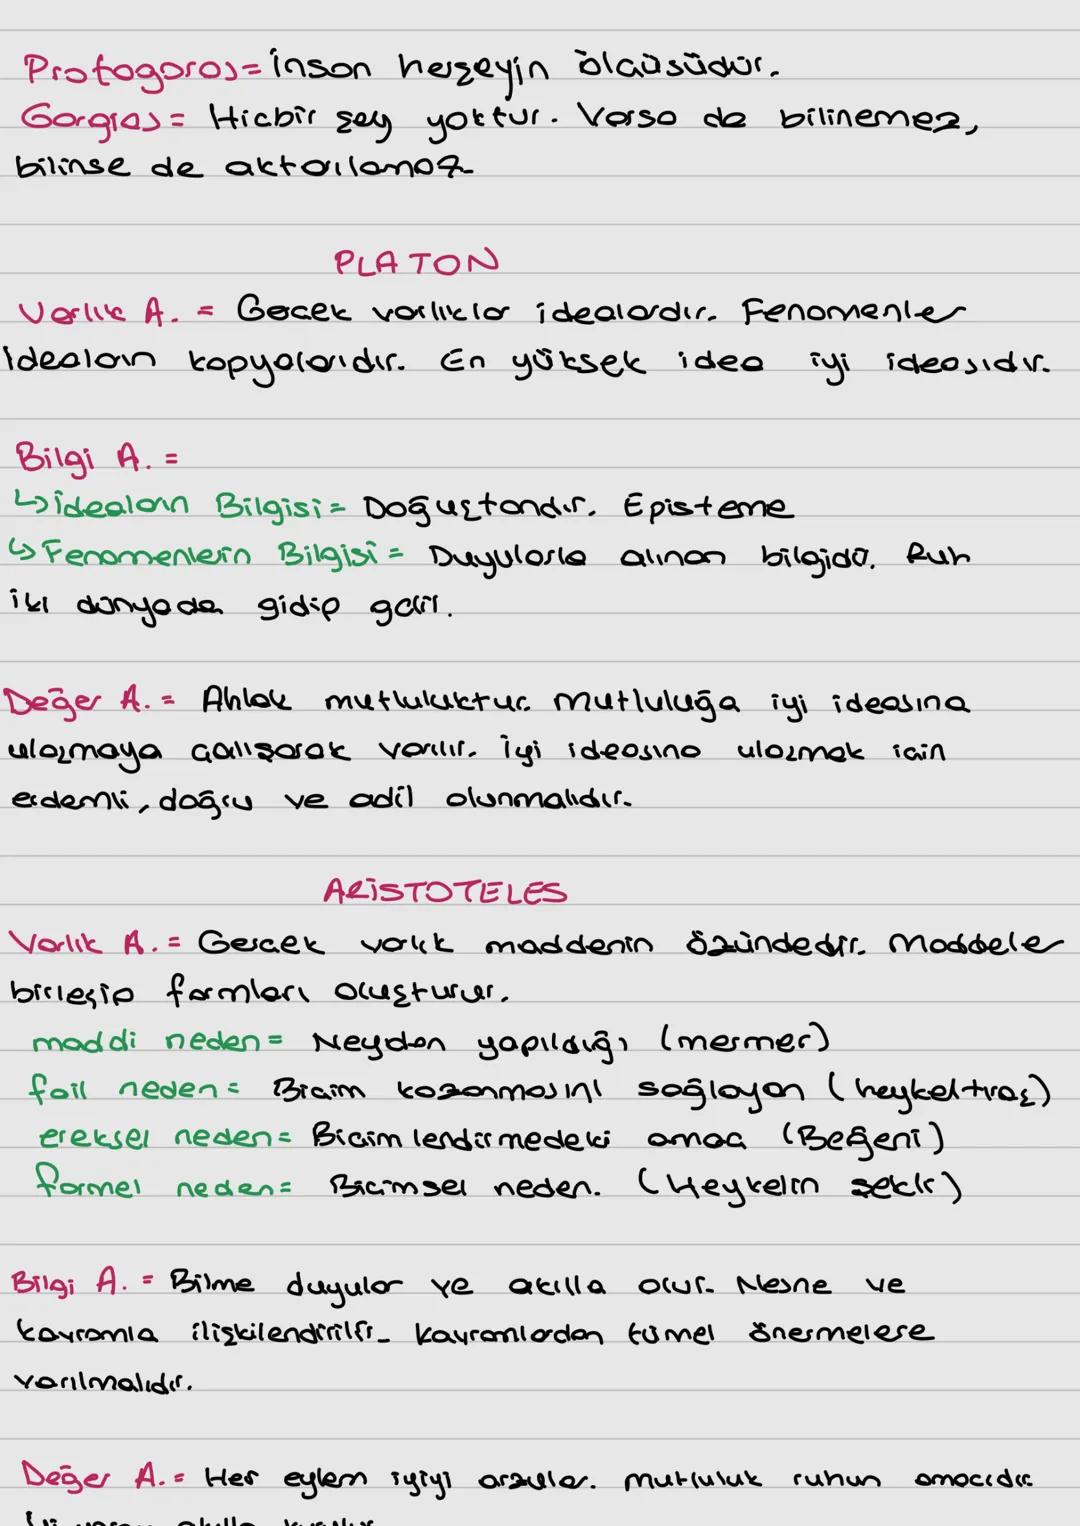 Protogoros= İnson herşeyin ölçüsüdür.
Gorgias= Hiçbir şey yoktur. Varsa da bilinemez,
bilinse de aktarılamaz.
PLATON
Varlık A. = Gerçek varlıklar idealardır. Fenomenler
ideaların kopyalarıdır. En yüksek idea iyi ideasıdır.
Bilgi A. =
↳ideaların Bilgisi= Doğuştandır. Episteme
↳Fenomenlerin Bilgisi= Duyularla alınan bilgidir. Ruh
iki dünyada gidip gelir.
Değer A. = Ahlak mutluluktur. Mutluluğa iyi ideasına
ulaşmaya çalışarak varılır. İyi ideasına ulaşmak için
erdemli, doğru ve adil olunmalıdır.
ARİSTOTELES
Varlık A. = Gerçek varlık maddenin özündedir. Maddeler
birleşip formları oluşturur.
maddi neden= Neyden yapıldığı (mermer)
fail neden= Biçim kazanmasını sağlayan (heykeltıraş)
ereksel neden= Biçimlendirmedeki amaç (Beğeni)
formel neden= Biçimsel neden. (Heykelin şekli)
Bilgi A. = Bilme duyular ve akılla olur. Nesne ve
kavramla ilişkilendirilir. Kavramlardan tümel önermelere
varılmalıdır.
Değer A. = Her eylem iyiyi arzular. Mutluluk ruhun amacıdır.